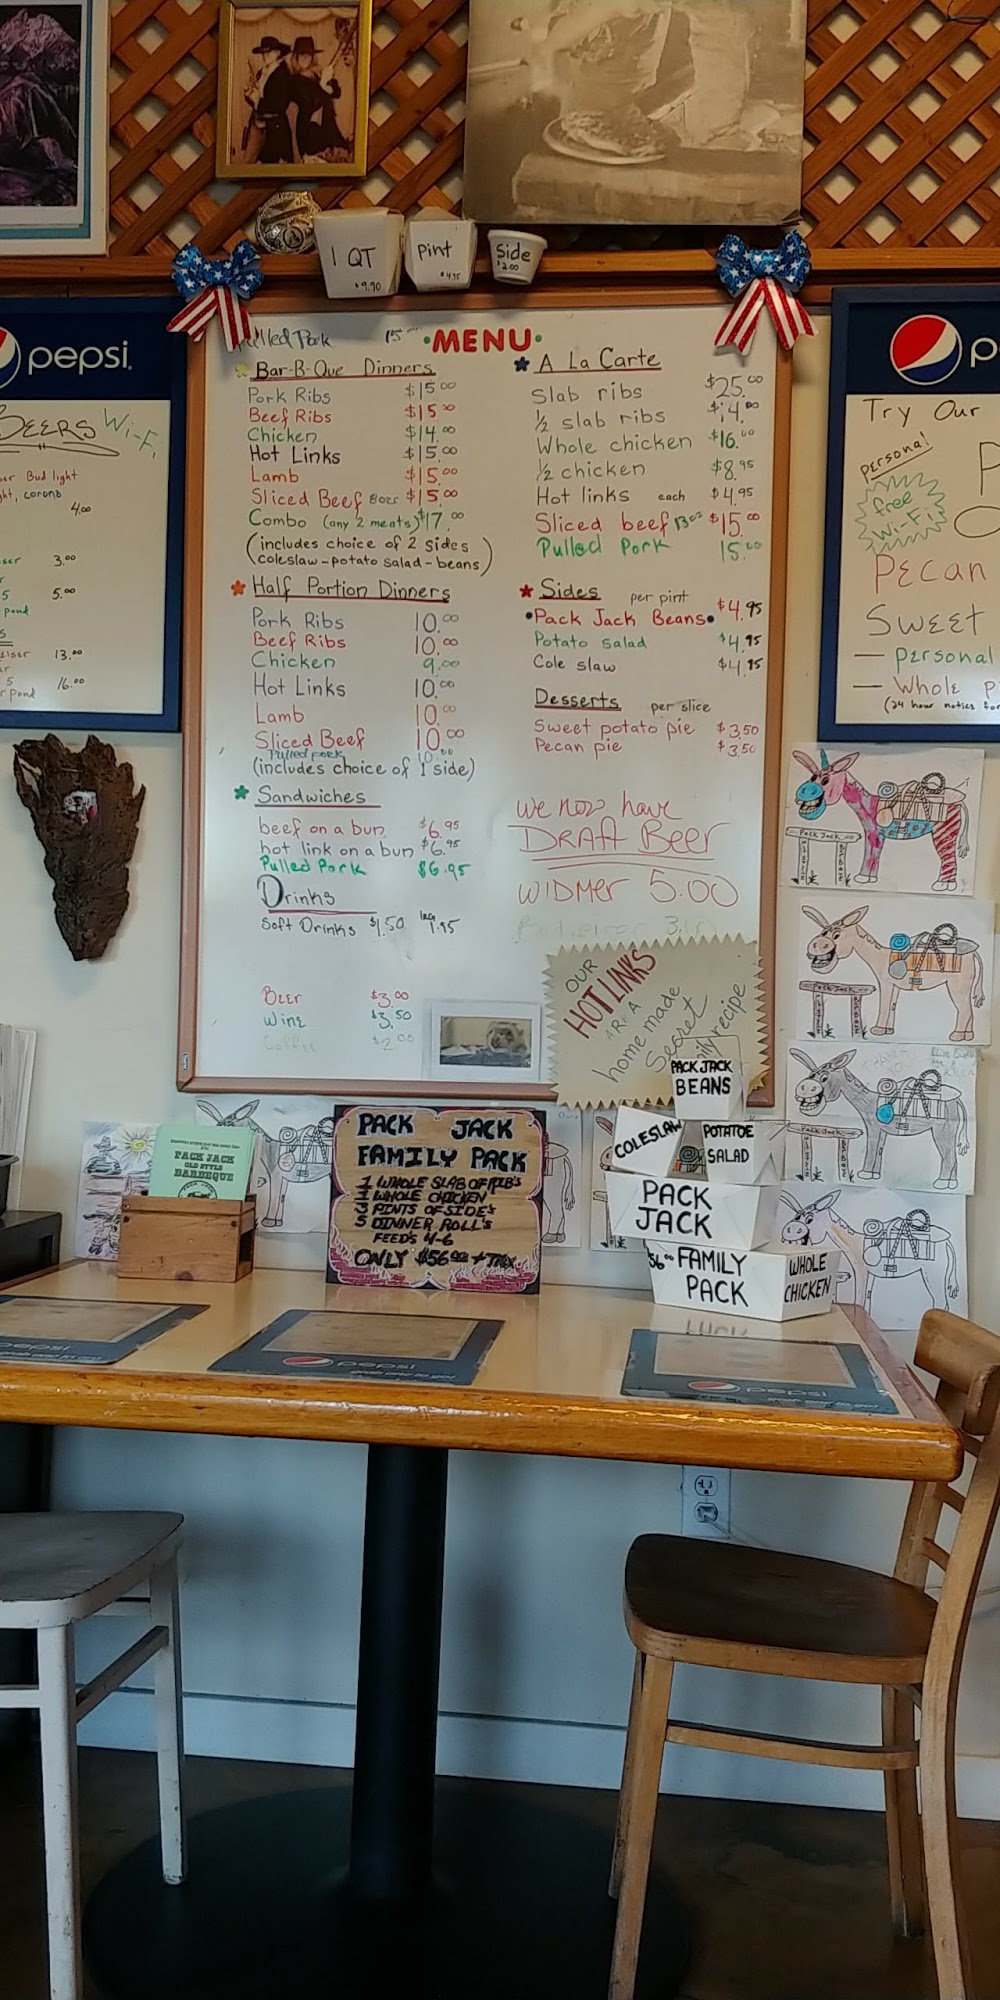 1 QT
$9.90
Pint
$4.95
Side
$2.00
pepsi
BEERS Wi-Fi
Bud light
corona
4.00
3.00
5 5.00
13.00
5 16.00
Pulled Pork 15
•MENU•
Bar-B-Que Dinners
Pork Ribs $15.00
Beef Ribs $15.00
Chicken $14.00
Hot Links $15.00
Lamb $15.00
Sliced Beef 8oz $15.00
Combo (any 2 meats) $17.00
(includes choice of 2 sides
coleslaw-potato salad-beans)
Half Portion Dinners
Pork Ribs 10.00
Beef Ribs 10.00
Chicken 9.00
Hot Links 10.00
Lamb 10.00
Sliced Beef 10.00
Pulled pork 10.00
(includes choice of 1 side)
Sandwiches
beef on a bun $6.95
hot link on a bun $6.95
Pulled Pork $6.95
Drinks
Soft Drinks $1.50 lrg 1.95
Beer $3.00
Wine $3.50
Coffee $2.00
A La Carte
Slab ribs $25.00
½ slab ribs $14.00
Whole chicken $16.00
½ chicken $8.95
Hot links each $4.95
Sliced beef 13oz $15.00
Pulled Pork 15.00
Sides per pint
•Pack Jack Beans• $4.95
Potato salad $4.95
Cole slaw $4.95
Desserts per slice
Sweet potato pie $3.50
Pecan pie $3.50
we now have
DRAFT Beer
WIDMER 5.00
Budweiser
OUR
HOT LINKS
ARE A
home made
Secret
family recipe
Try Our
personal
free
Wi-Fi
Pecan
Sweet
— personal
— Whole
(24 hour notice for
Pack Jack
Pack Jack
Pack Jack
PACK JACK
OLD STYLE
BARBEQUE
PACK JACK
FAMILY PACK
1 WHOLE SLAB OF RIB'S
1 WHOLE CHICKEN
3 PINTS OF SIDE'S
5 DINNER ROLL'S
FEED'S 4-6
ONLY $56.00 + TAX
PACK JACK
BEANS
COLESLAW
POTATOE
SALAD
PACK
JACK
56.00 FAMILY
PACK
WHOLE
CHICKEN
pepsi
pepsi
pepsi